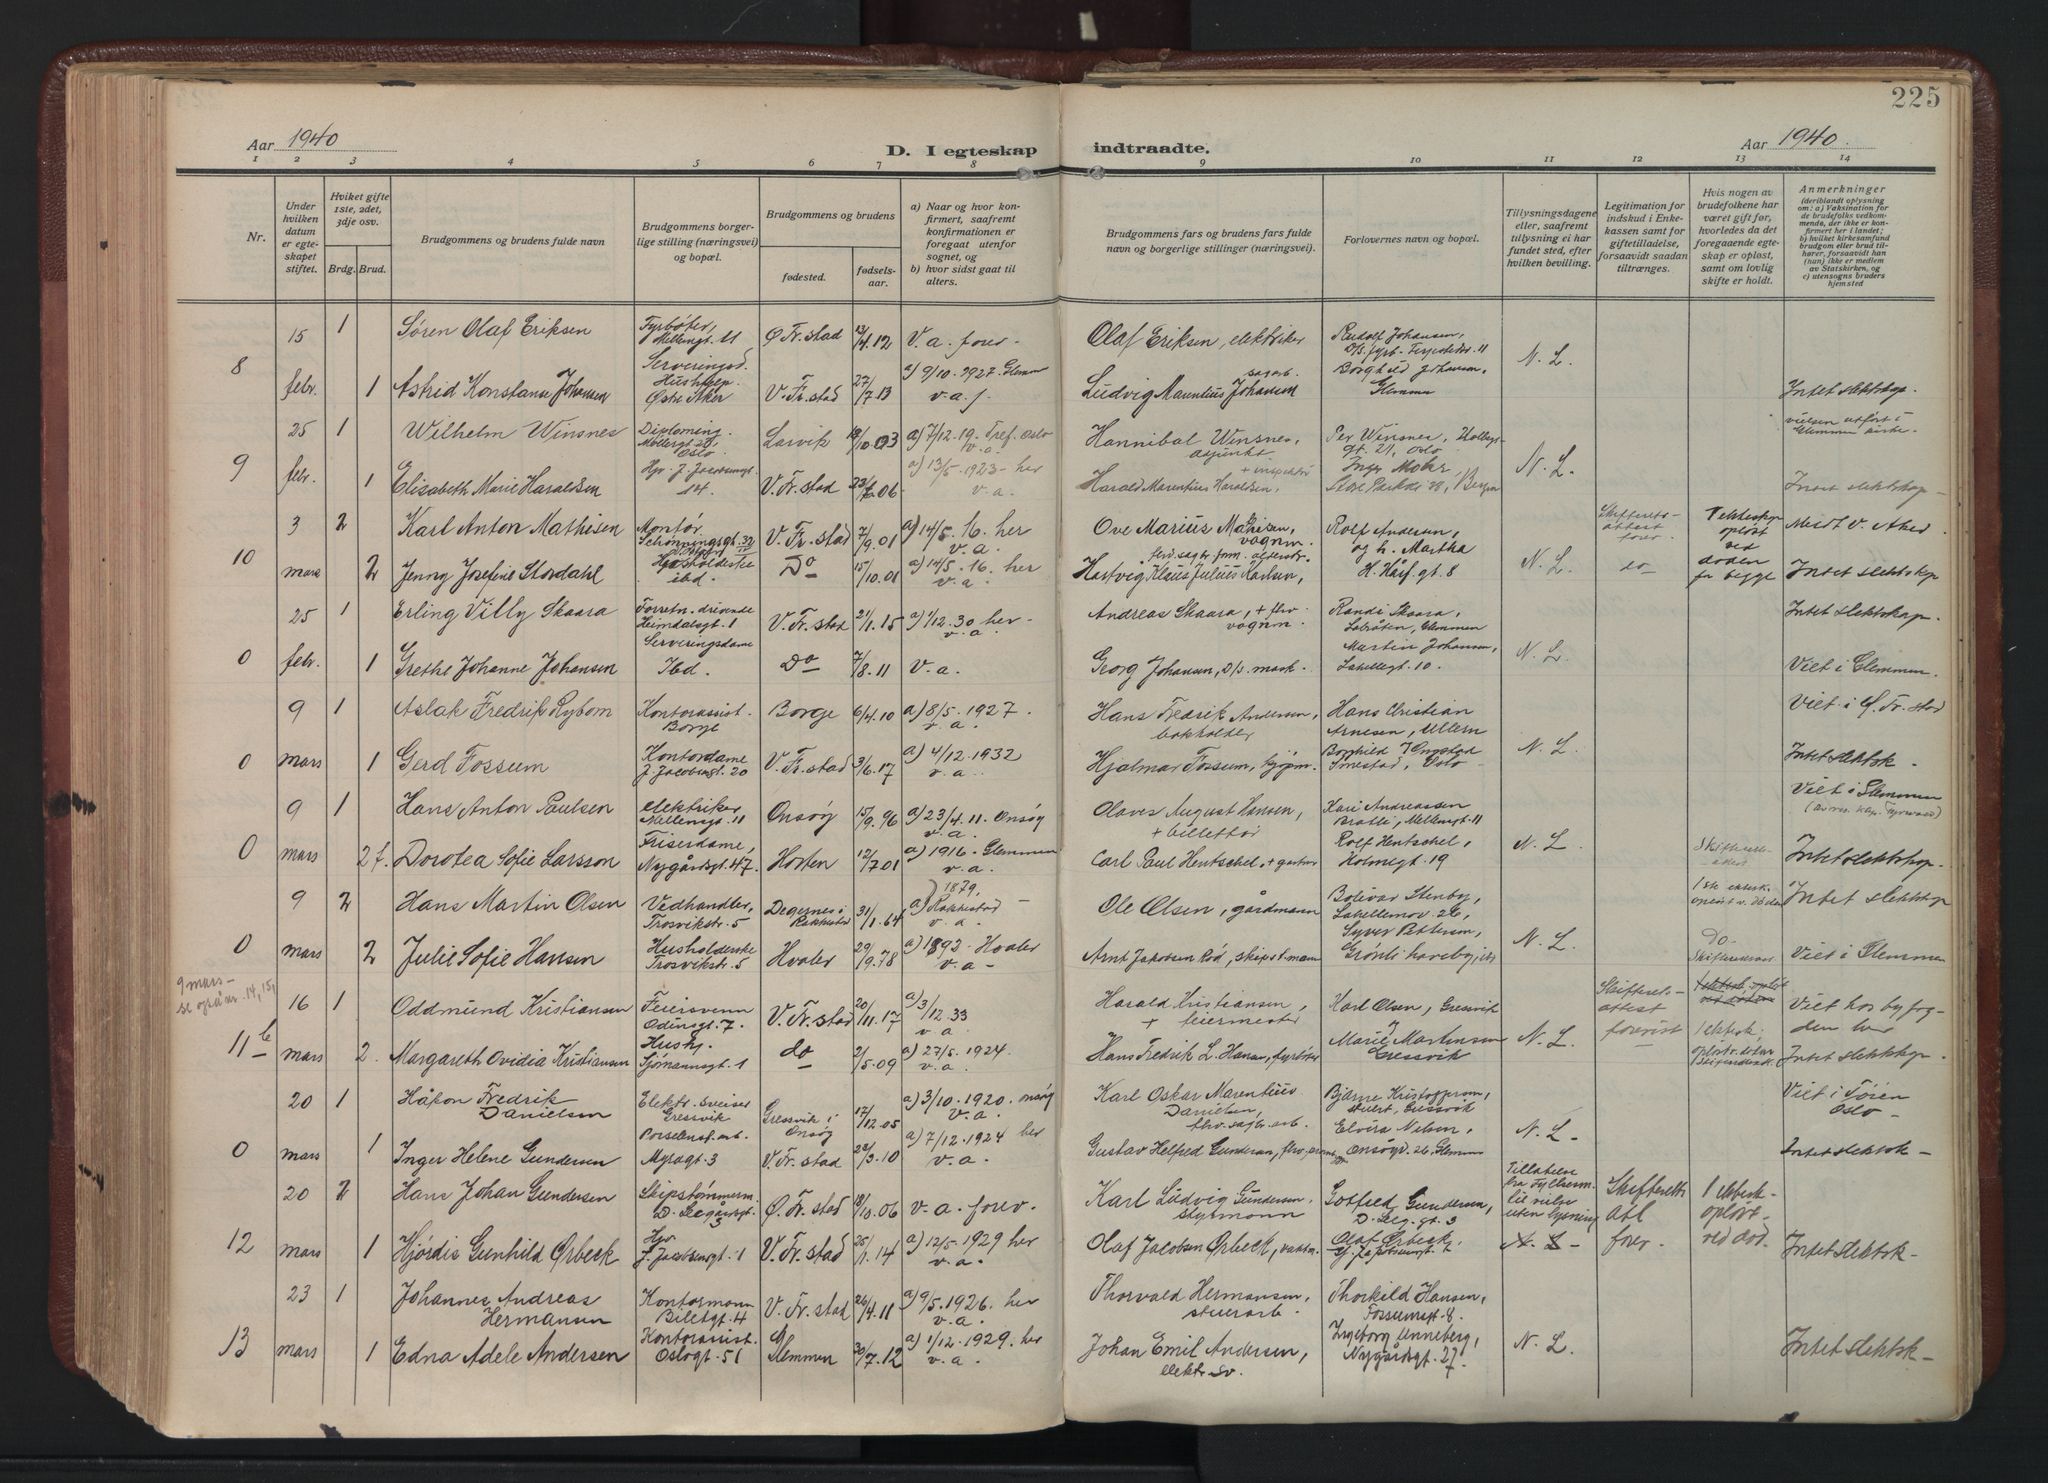 225
Aar 1940
D. I egteskap indtraadte.
Aar 1940.
1 2 3 4 5 6 7 8 9 10 11 12 13 14
Nr.
Under hvilken datum er egteskapet stiftet.
Hviket gifte 1ste, 2det, 3dje osv.
Brdg. Brud.
Brudgommens og brudens fulde navn
Brudgommens borgerlige stilling (næringsvei) og bopæl.
Brudgommens og brudens
fødested.
fødselsaar.
a) Naar og hvor konfirmert, saafremt konfirmationen er foregaat utenfor sognet, og
b) hvor sidst gaat til alters.
Brudgommens fars og brudens fars fulde navn og borgerlige stillinger (næringsvei).
Forlovernes navn og bopæl.
Tillysningsdagene eller, saafremt tillysning ei har fundet sted, efter hvilken bevilling.
Legitimation for indskud i Enkekassen samt for giftetilladelse, forsaavidt saadan tiltrænges.
Hvis nogen av brudefolkene har været gift før, hvorledes da det foregaaende egteskap er opløst, samt om lovlig skifte er holdt.
Anmerkninger (deriblandt oplysning om: a) Vaksination for de brudefolks vedkommende, der ikke er konfirmert her i landet; b) hvilket kirkesamfund brudgom eller brud tilhører, forsaavidt han (hun) ikke er medlem av Statskirken, og c) utensogns bruders hjemsted
8
15 1 Søren Olaf Eriksen Fyrbøter, Mellemgt. 11 Ø Fr.stad 13/4.12 V.a. forev. Olaf Eriksen, elektriker Rudolf Johansen,
febr. 1 Astrid Konstanse Johansen Serveringsd. Østre Aker V. Fr.stad 27/7.13 a) 9/10.1927. Glemmen v.a.f. Ludvig Mauritius Johansen Borghild Johansen, Glemmen N.L. Intet slektskap.
9
25 1 Wilhelm Winsnes Dipl.ørning. Møllergt. 20, Oslo Larvik 18/10.03 a) 7/12.19. Tref. Oslo v.a. Hannibal Winsnes, adjunkt Per Winsnes, gt. 21, Oslo vielsen utført i Glemmen kirke.
febr. 1 Elisabeth Marie Haraldsen J. Jacobsensgt. 14. V. Fr.stad 23/6.06 a) 13/5.1923 – her v.a. Harald Marentius Haraldsen, + inspektør Inger Mohr Store Parkvei, Bergen N.L. Intet slektskap –
10
3 2 Karl Anton Mathisen Montør Schønningsgt. 32 V. Fr.stad 7/9.01 a) 14/5.16. her v.a. Ove Marius Mathisen, vognm. Rolf Andersen, og h. Martha Skifteretts-attest forev. 1 ekteskap opløst ved døden for begge Medt V. Aker
mars 2 Jenny Josefine Stordahl Husholderske ibd. Do 15/10.01 a) 14/5.16. her v.a. Hartvig Klaus Julius Karlsen, H. Håsf.gt. 8 N.L. do Intet slektskap
25 1 Erling Villy Skaara Forretn. drivende Heimdalsgt. 1 V. Fr.stad 21/1.15 a) 1/12.30 her v.a. Andreas Skaara, + fhv vognm. Randi Skaara, Glemmen Intet slektskap.
0 febr. 1 Grethe Johanne Johansen Serveringsdame Ibd. Do 7/8.11 V.a. Georg Johansen, D/s. mask. Martin Johansen, Lakkegt. 10. N.L. Viet i Glemmen.
9 1 Aslak Fredrik Rybom Kontorassist. Borge Borge 6/4.10 a) 8/5.1927. v.a. Hans Fredrik Andersen, bokholder Hans Christian Arnesen, Ullern Viet i Ø. Fr.stad
0 mars 1 Gerd Fossum Kontordame J. Jacobsensgt. 20 V. Fr.stad 3/6.17 a) 4/12.1932 v.a. Hjalmar Fossum, kjøpm. Borghild Oslo N.L. Intet slektsk.
9 1 Hans Anton Paulsen elektriker Mellemsgt. 11 Onsøy 15/9.96 a) 23/4.11. Onsøy v.a. Olaves August Hansen, + billettør Kari Andreassen Bratli, Mellemgt. 11 Viet i Glemmen
0 mars 2 f. Dorotea Sofie Larsson Friserdame, Nygårdsgt. 47 Horten 12/7.01 a) 1916. Glemmen v.a. Carl Paul Hentschel, + gartner Rolf Hentschel, Holmegt. 19 N.L. Intet slektskap.
9 2 Hans Martin Olsen Vedhandler, Trosvikstr. 5 Degernes i Rakkestad 31/1.64 a) 1879, Rakkestad v.a. Ole Olsen, gårdmann Bolivar Stenby, 26, 1ste ektesk. opløst v. døden Intet slektskap
0 mars 2 Julie Sofie Hansen Husholderske Trosvikstr. 5 Hvaler 29/9.78 a) 1893 – Hvaler v.a – Arnt Jakobsen Rød, skipst.mann Syver Pettersen, Grønli havebyjets N.L. Do – Viet i Glemmen
9 mars – se også nr. 14, 15,
11b
16 1 Oddmund Kristiansen Feiersvenn Odinsgt. 7. V. Fr.stad 20/11.17 a) 3/12.33 v.a. Harald Kristiansen, + feiermester Karl Olsen, Gressvik Skifteretts-attest forevist Viet hos byfogden her
mars 2. Margareth Ovidia Kristiansen Hush. Sjømannsgt. 1 do 2/5.09 a) 27/5.1924. v.a. Hans Fredrik L. Hansen, fyrbøter Marie Martinsen Gressvik N.L. 1 ektesk. Intet slektskap.
20 1 Håkon Fredrik Danielsen Elektr. sveiser Gressvik Gressvik i Onsøy 17/12.05 a) 3/10.1920. Onsøy v.a. Karl Oskar Marentius Danielsen, fhv. sagbr.arb. Bjarne Kristoffersen, stuert, Gressvik Viet i Tøien Oslo –
0 mars 1 Inger Helene Gundersen Porselensf.arb. Myragt. 3 V. Fr.stad 23/3.10 a) 7/12.1924 her v.a. Gustav Helfred Gundersen, Elvira Nelsen, Glemmen N.L – Intet slektsk –
12
20 2 Hans Johan Gundersen Skipstømmerm. 3 Ø. Fr.stad 18/10.06 V.a. forev. Karl Ludvig Gundersen, styrmann Gotfred Gundersen, 3 Tillatelse fra Fylkesm. til vielse uten lysning Skifteretts att. forev. 1 ektesk. opløst ved død.
mars 1 Hjørdis Gunhild Ørbeck J. Jacobsensgt. 1 V. Fr.stad 25/1.14 a) 12/5.1929 her v.a. Olaf Jacobsen Ørbeck, vaktm. Olaf Ørbeck, N.L – Intet slektsk –
13
23 1 Johannes Andreas Hermansen Kontormann Biletgt. 4 V. Fr.stad 26/4.11 a) 9/5.1926. her v.a. Thorvald Hermansen, stuerarb. Thorkild Hansen, Fossumsgt. 8.
mars 1 Edna Adele Andersen Kontorassist. Oslogt. 51 Glemmen 30/7.12 a) 1/12.1929. her v.a. Johan Emil Andersen, elektr. sv. Ingeborg Tenneberg, Nygårdsgt. 27. N.L. Intet slektsk –